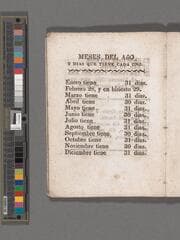 MESES DEL AÑO,
Y DIAS QUE TIENE CADA UNO.
Enero tiene 31 dias.
Febrero 28, y en bisiesto 29.
Marzo tiene 31 dias.
Abril tiene 30 dias.
Mayo tiene 31 dias.
Junio tiene 30 dias.
Julio tiene 31 dias.
Agosto tiene 31 dias.
Septiembre tiene 30 dias.
Octubre tiene 31 dias.
Noviembre tiene 30 dias.
Diciembre tiene 31 dias.